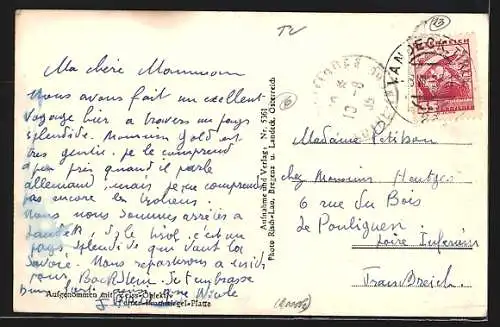 Ma chère Mamman
Nous avons fait un excellent
voyage hier a travers un pays
splendide. Monsieur Gold est
très gentil. je le comprend
a peu près quand il parle
allemand mais je ne comprend
pas encore les
nous nous sommes arrêtés a
Landeck, le tirol c'est un
pays splendide qui vaut la
Savoie. Nous repartirons a midi
pour Je t'embrasse
bien fort
Aufgenommen mit Zeiss-Objektiv
Platte
Aufnahme und Verlag, Nr. 5361
Photo Risch-Lau, Bregenz u. Landeck, Österreich
LANDECK
Madame Petitbon
chez Monsieur
6 rue du Bois
de Pouliguen
Loire Inférieure
Frankreich
13
6